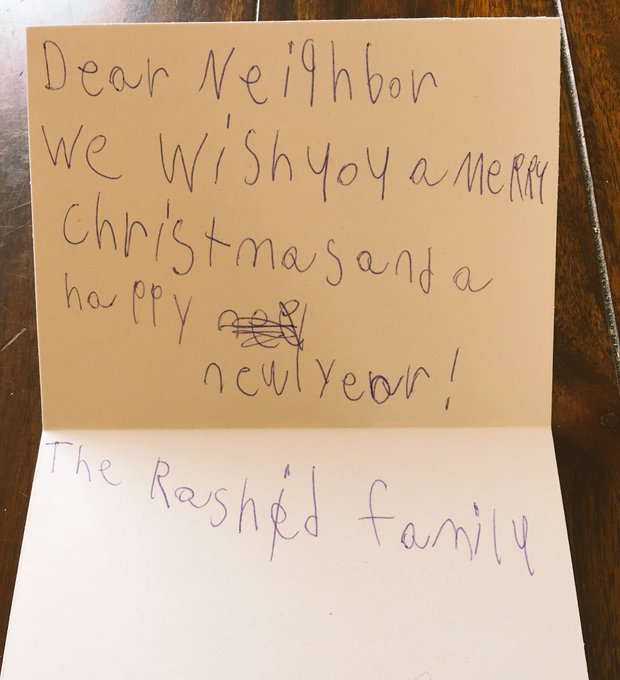 Dear Neighbor
We Wish yoy a MeRRy
christmas and a
happy
new year!
The Rashid family